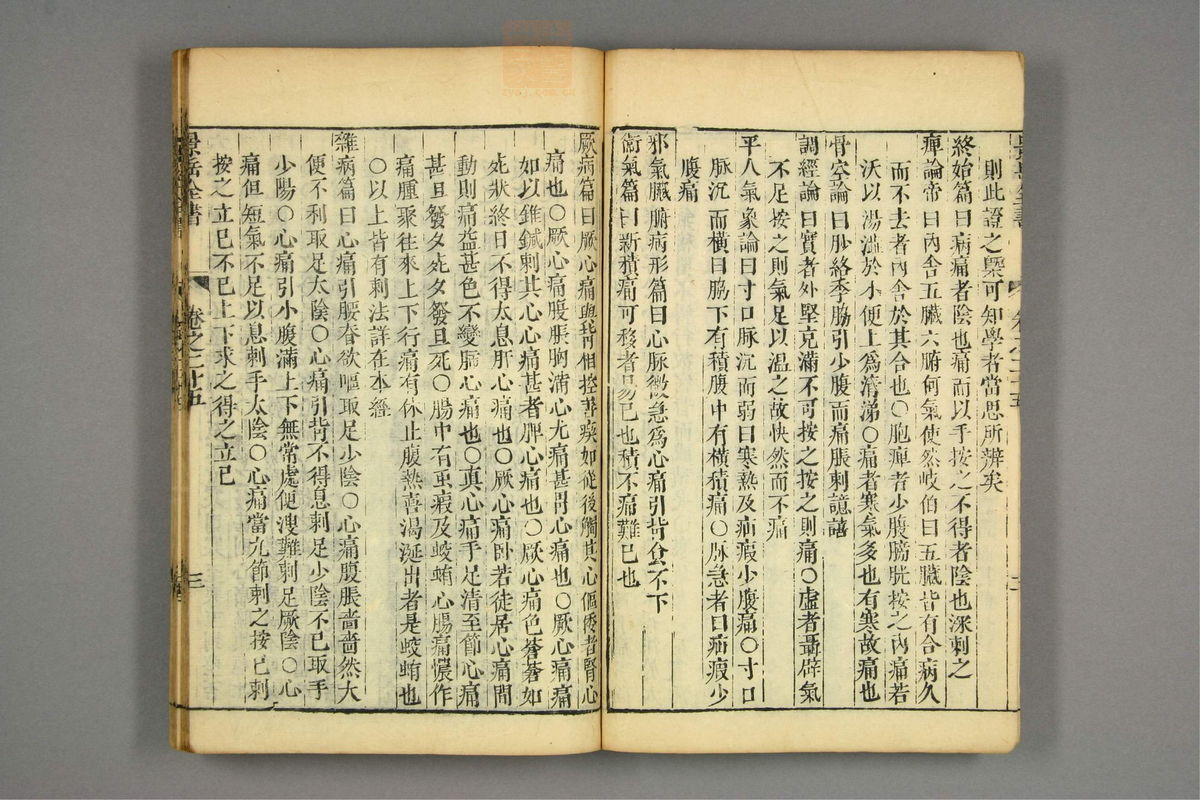 則此證之槩可知學者當思所辨矣
終始篇曰病痛者陰也痛而以手按之不得者陰也深刺之
痺論帝曰內舍五臟六腑何氣使然岐伯曰五臟皆有合病久
而不去者內舍於其合也○胞痺者少腹膀胱按之內痛若
沃以湯濇於小便上爲清涕○痛者寒氣多也有寒故痛也
骨空論曰䏚絡季脇引少腹而痛脹刺譩譆
調經論曰實者外堅克滿不可按之按之則痛○虛者聶辟氣
不足按之則氣足以溫之故快然而不痛
平人氣象論曰寸口脉沉而弱曰寒熱及疝瘕少腹痛○寸口
脉沉而橫曰脇下有積腹中有橫積痛○脉急者曰疝瘕少
腹痛
邪氣臟腑病形篇曰心脉微急爲心痛引背食不下
衛氣篇曰新積痛可移者易已也積不痛難已也
厥病篇曰厥心痛與背相控善瘈如從後觸其心傴僂者腎心
痛也○厥心痛腹脹胸滿心尤痛甚胃心痛也○厥心痛痛
如以錐鍼刺其心心痛甚者脾心痛也○厥心痛色蒼蒼如
死狀終日不得太息肝心痛也○厥心痛卧若徒居心痛間
動則痛益甚色不變肺心痛也○眞心痛手足清至節心痛
甚旦發夕死夕發旦死○腸中有蟲瘕及蛟蛕心腸痛憹作
痛腫聚往來上下行痛有休止腹熱喜渴涎出者是蛟蛕也
○以上皆有刺法詳在本經
雜病篇曰心痛引腰脊欲嘔取足少陰○心痛腹脹嗇嗇然大
便不利取足太陰○心痛引背不得息刺足少陰不已取手
少陽○心痛引小腹滿上下無常處便溲難刺足厥陰○心
痛但短氣不足以息刺手太陰○心痛當九節刺之按已刺
按之立已不已上下求之得之立已
景岳全書
卷之二十五
三